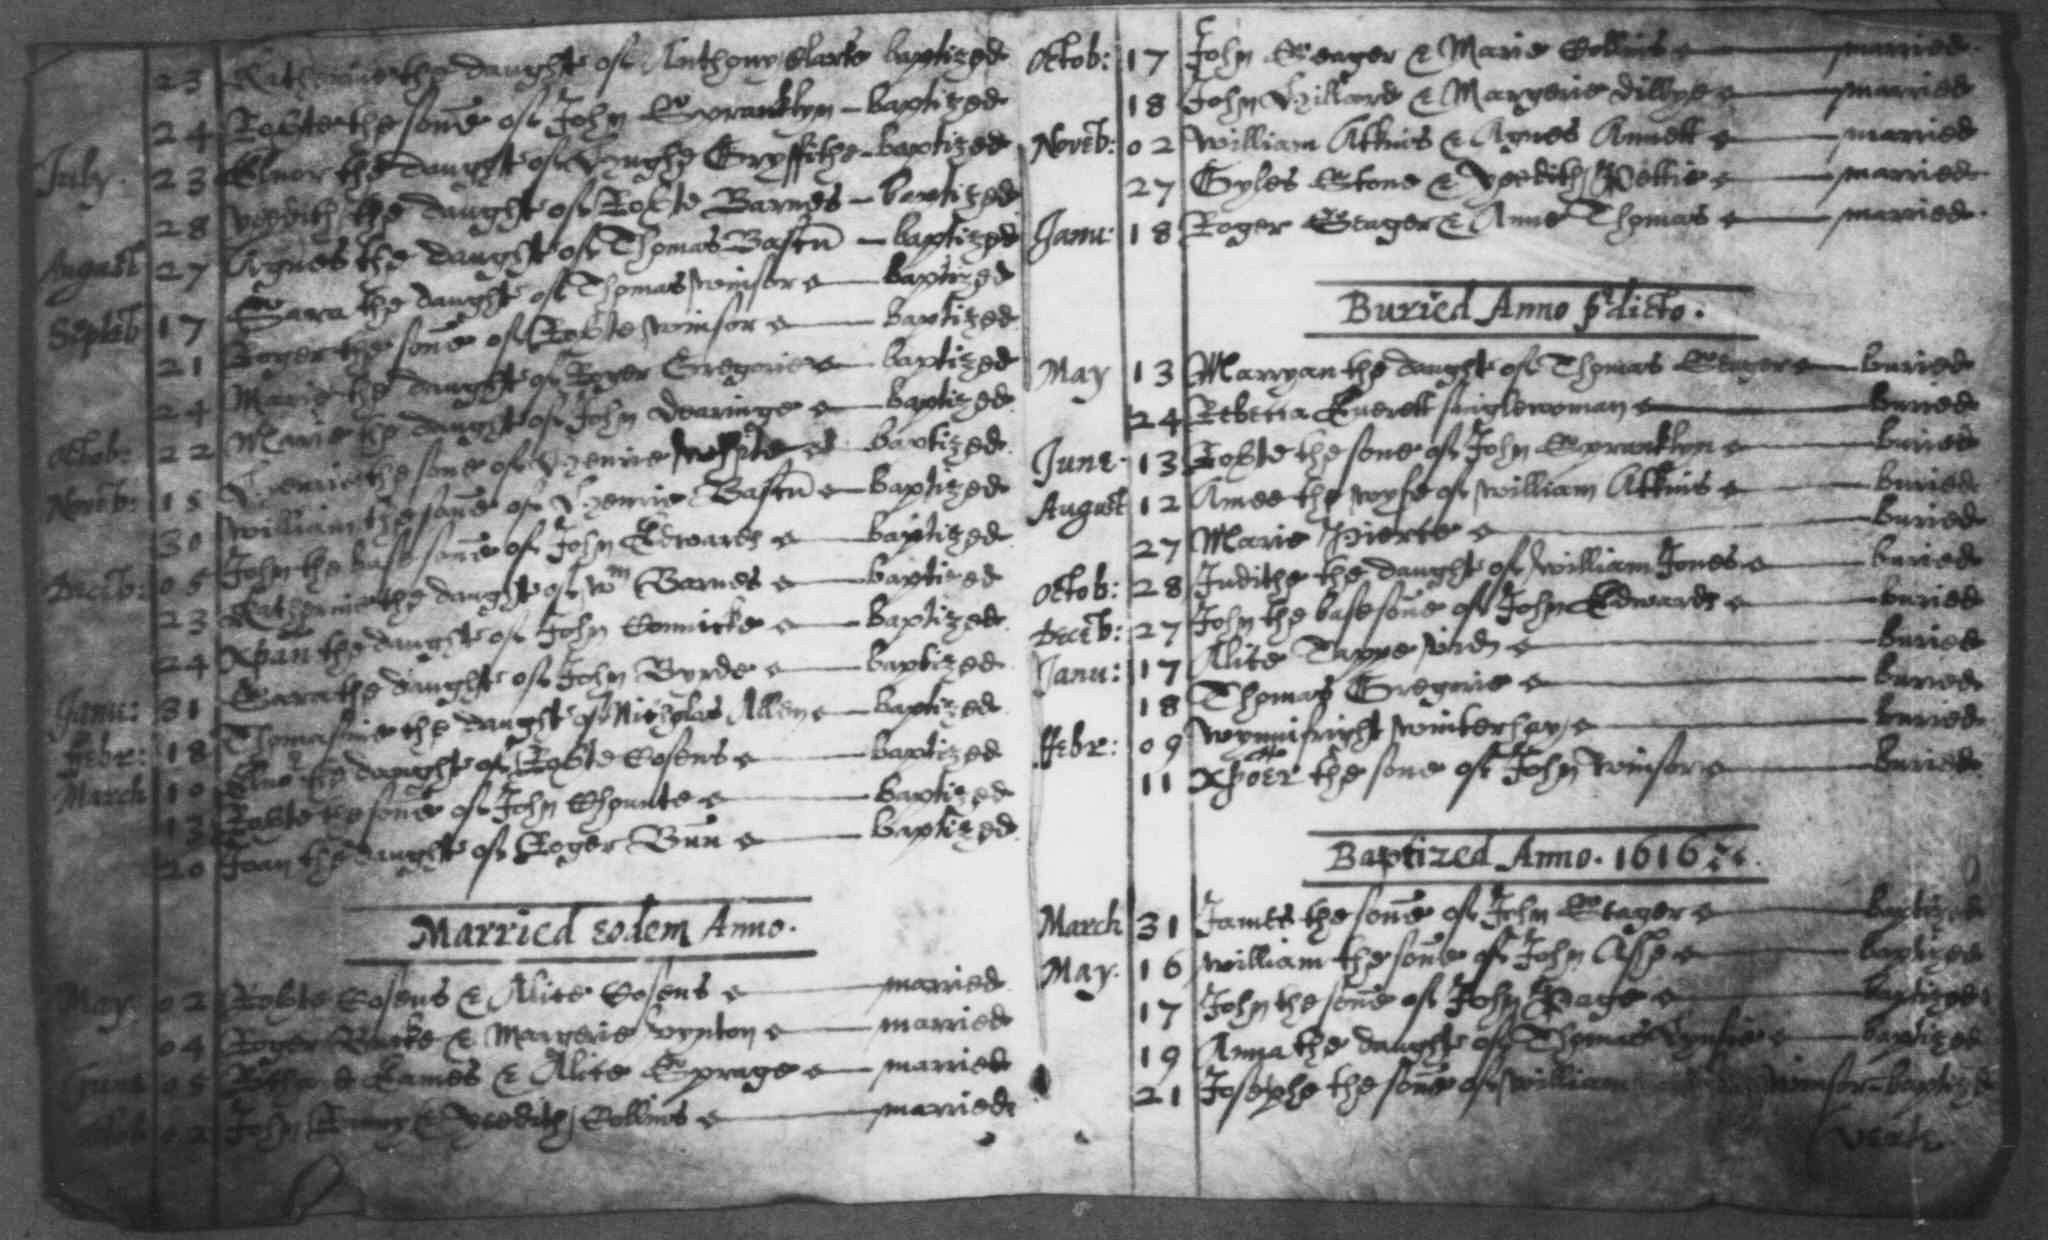 23 Katherine the daught of Anthony Clarke baptized
24 Robte the sone of John Spranklyn baptized
July. 23 Elnor the daught of Hughe Gryffithe baptized
28 Meedith the daught of Robte Barnes baptized
August 27 Agnes the daught of Thomas Bastn baptized
Septeb 17 Sara the daught of Thomas Winsor baptized
21 Roger the sone of Robte Winsor baptized
24 Marie the daught of Roger Gregorie baptized
Octob: 22 Marie the daught of John Dearinge baptized
Noveb: 15 Henrie the sone of Henrie White baptized
30 William the sone of Henrie Bastn baptized
Deceb: 05 John the base sone of John Edwards baptized
23 Katherine the daught of Wm Barnes baptized
24 Xpan the daught of John Connicke baptized
Janu: 31 Sara the daught of John Byrde baptized
Febr: 18 Thomasine the daught of Nicholas Allen baptized
March 10 the daught of Robte Cosens baptized
13 Robte the sone of John baptized
20 Joan the daught of Roger Bunn baptized
Married eodem Anno.
May. 02 Robte Cosens & Alice Cosens married
04 Roger & Margerie Wynton married
June 05 Eames & Alice Sprage married
Octob 02 John & Meedith Collins married
Octob: 17 John Seager & Marie Collins married
18 John Hillard & Margerie Dillye married
Noveb: 02 William Atkins & Agnes Annett married
27 Gyles Stone & Meedith Pettie married
Janu: 18 Roger Seager & Anne Thomas married
Buried Anno pdicto:
May 13 Marryan the daught of Thomas Seager buried
24 Rebecca Everett singlewoman buried
June 13 Robte the sone of John Spranklyn buried
August 12 Amee the wyfe of William Atkins buried
27 Marie Pierce buried
Octob: 28 Judithe the daught of William Jones buried
Deceb: 27 John the base sone of John Edwards buried
Janu: 17 Alice Tappe buried
18 Thomas Gregorie buried
ffebr: 09 Wynnifright Winterhay buried
11 Xpoer the sone of John Winsor buried
Baptized Anno. 1616
March 31 James the sone of John Seager baptized
May. 16 William the sone of John Ashe baptized
17 John the sone of John Page baptized
19 Anna the daught of Thomas baptized
21 Josephe the sone of William Winsor baptized
verte